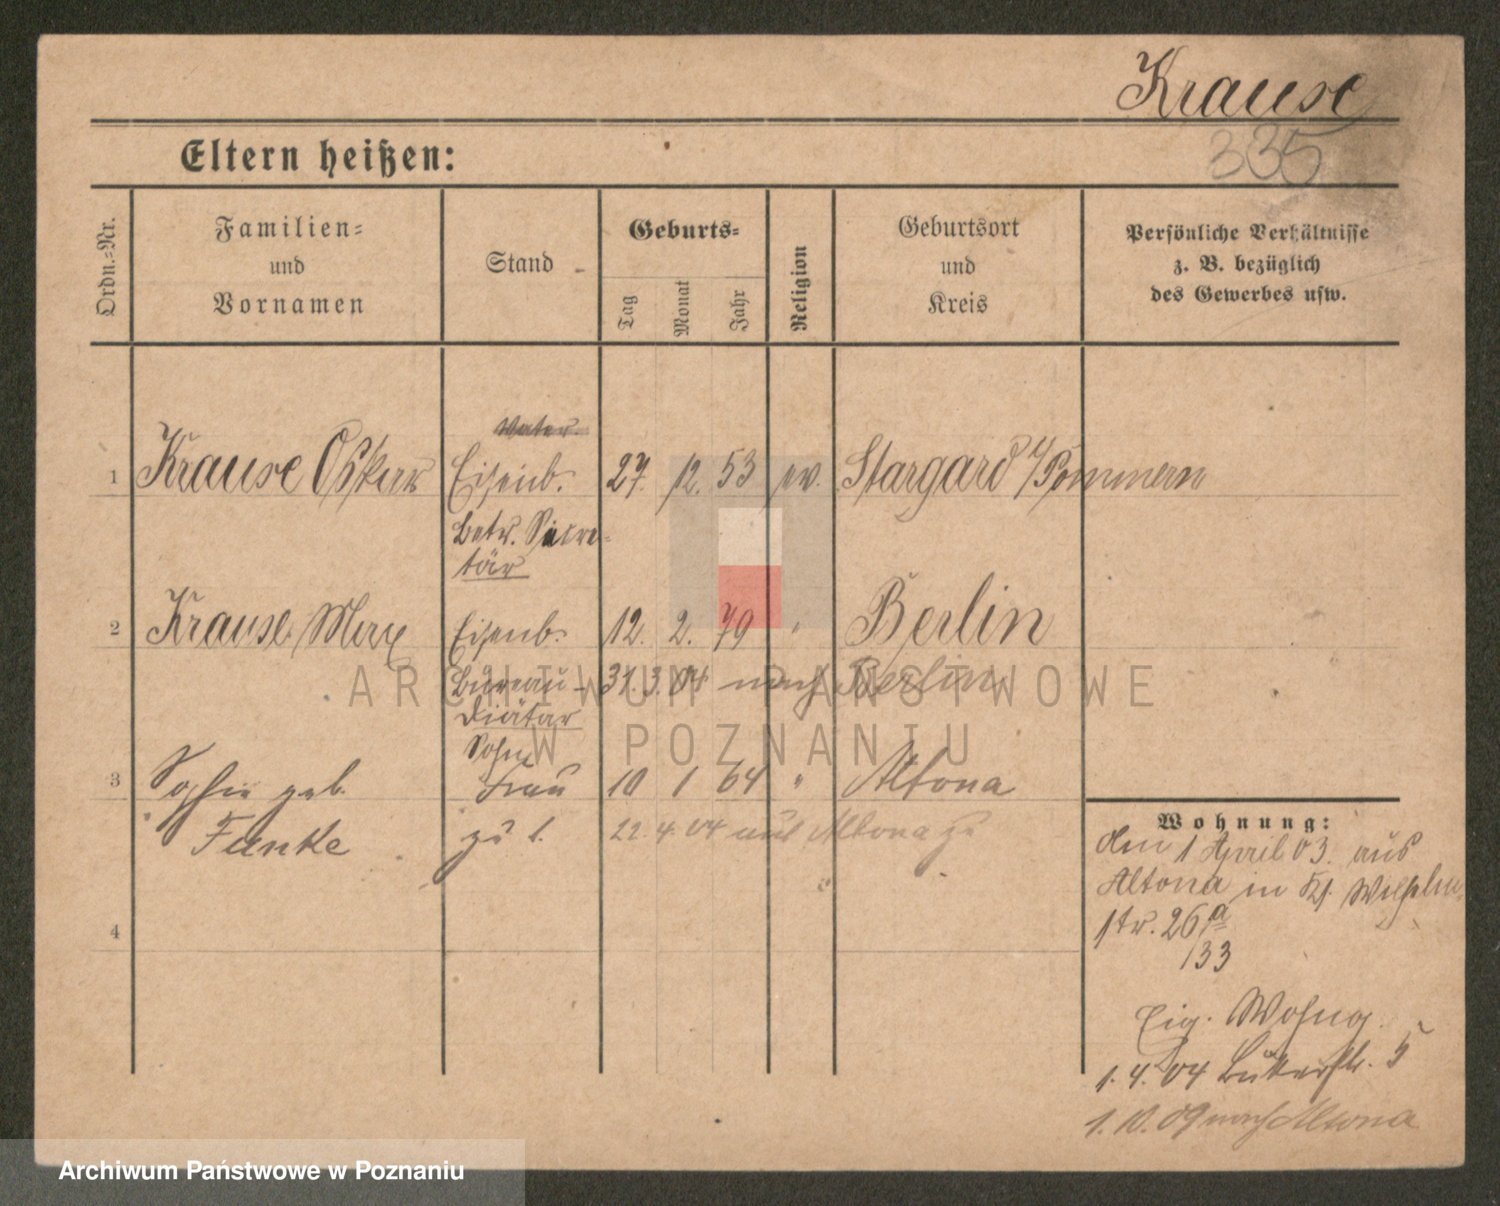 Krause
335
Eltern heißen:
Ordn.-Nr.
Familien-
und
Vornamen
Stand
Geburts-
Tag
Monat
Jahr
Religion
Geburtsort
und
Kreis
Persönliche Verhältnisse
z. B. bezüglich
des Gewerbes usw.
Vater
1 Krause Oskar Eisenb. 27. 12. 53 ev. Stargard i/Pommern
Betr. Secre-
tär
2 Krause Max Eisenb. 12. 2. 79 " Berlin
Büreau- 31. 3. 04 nach Berlin
Diätar
Sohn
3 Sophie geb. Frau 10 1 64 " Altona
Funke zu 1. 22. 4. 04 aus Altona zu
4
Wohnung:
den 1 April 03. aus
Altona in Kl. Wilhelm
str. 26a
133
Eig. Wohng.
1. 4. 04 5
1. 10. 09 nach Altona
ARCHIWUM PAŃSTWOWE
W POZNANIU
Archiwum Państwowe w Poznaniu